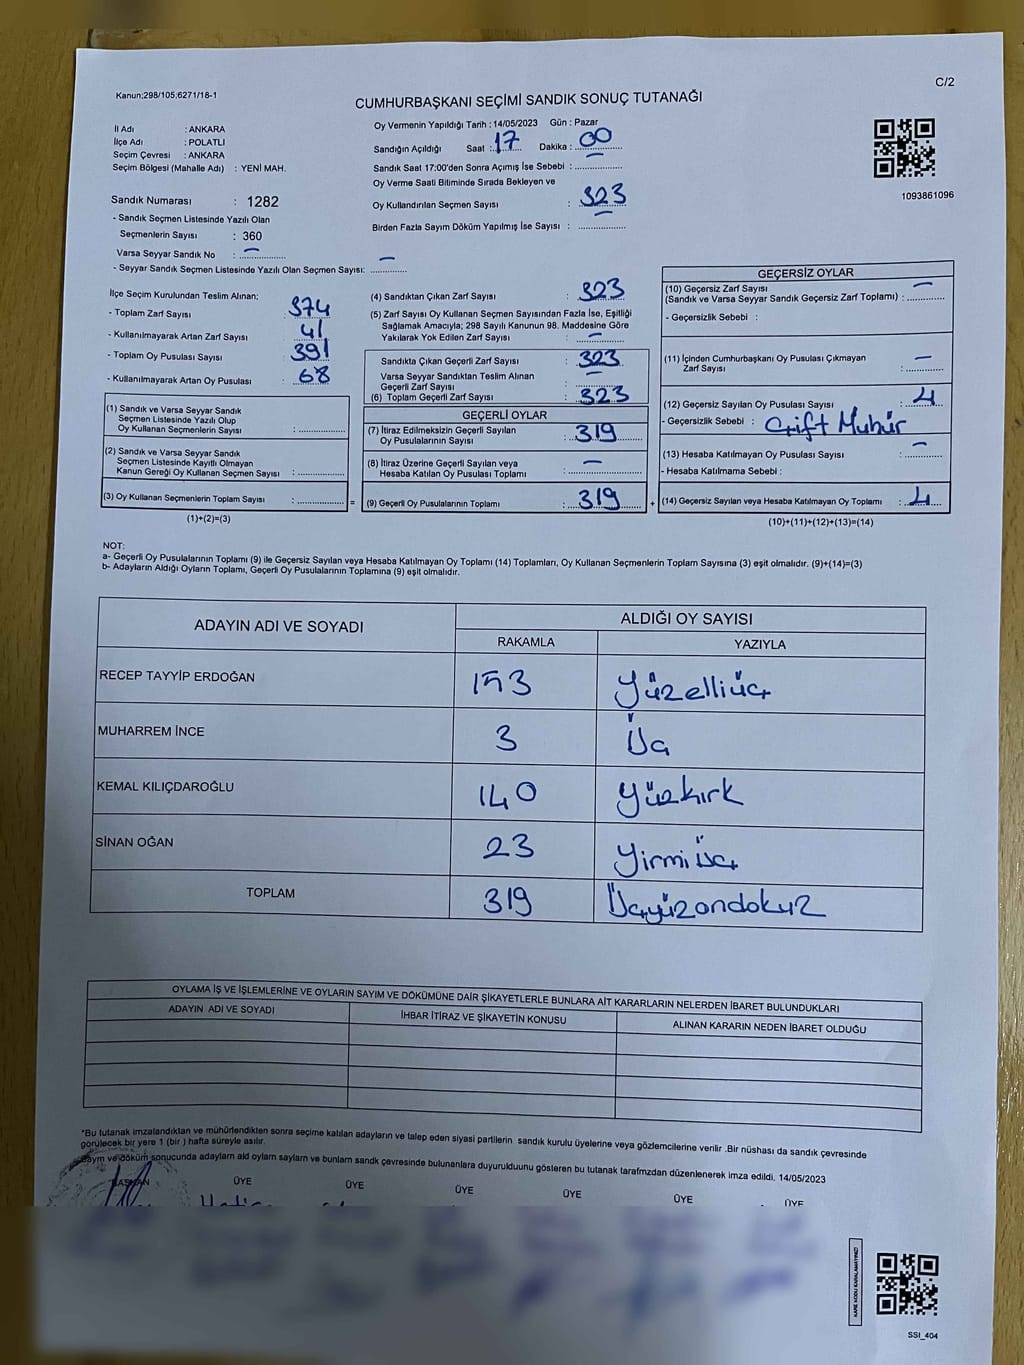 Kanun;298/105;6271/18-1
C/2
CUMHURBAŞKANI SEÇİMİ SANDIK SONUÇ TUTANAĞI
İl Adı : ANKARA
İlçe Adı : POLATLI
Seçim Çevresi : ANKARA
Seçim Bölgesi (Mahalle Adı) : YENİ MAH.
Oy Vermenin Yapıldığı Tarih : 14/05/2023 Gün : Pazar
Sandığın Açıldığı Saat : 17 Dakika : 00
Sandık Saat 17:00'den Sonra Açımış İse Sebebi :
Oy Verme Saati Bitiminde Sırada Bekleyen ve
Oy Kullandırılan Seçmen Sayısı : 323
Birden Fazla Sayım Döküm Yapılmış İse Sayısı :
1093861096
Sandık Numarası : 1282
- Sandık Seçmen Listesinde Yazılı Olan
Seçmenlerin Sayısı : 360
Varsa Seyyar Sandık No : —
- Seyyar Sandık Seçmen Listesinde Yazılı Olan Seçmen Sayısı: —
İlçe Seçim Kurulundan Teslim Alınan;
- Toplam Zarf Sayısı : 374
- Kullanılmayarak Artan Zarf Sayısı : 41
- Toplam Oy Pusulası Sayısı : 391
- Kullanılmayarak Artan Oy Pusulası : 68
(1) Sandık ve Varsa Seyyar Sandık
Seçmen Listesinde Yazılı Olup
Oy Kullanan Seçmenlerin Sayısı :
(2) Sandık ve Varsa Seyyar Sandık
Seçmen Listesinde Kayıtlı Olmayan
Kanun Gereği Oy Kullanan Seçmen Sayısı :
(3) Oy Kullanan Seçmenlerin Toplam Sayısı : =
(1)+(2)=(3)
(4) Sandıktan Çıkan Zarf Sayısı : 323
(5) Zarf Sayısı Oy Kullanan Seçmen Sayısından Fazla İse, Eşitliği
Sağlamak Amacıyla; 298 Sayılı Kanunun 98. Maddesine Göre
Yakılarak Yok Edilen Zarf Sayısı : —
Sandıkta Çıkan Geçerli Zarf Sayısı : 323
Varsa Seyyar Sandıktan Teslim Alınan
Geçerli Zarf Sayısı : —
(6) Toplam Geçerli Zarf Sayısı : 323
GEÇERLİ OYLAR
(7) İtiraz Edilmeksizin Geçerli Sayılan
Oy Pusulalarının Sayısı : 319
(8) İtiraz Üzerine Geçerli Sayılan veya
Hesaba Katılan Oy Pusulası Toplamı : —
(9) Geçerli Oy Pusulalarının Toplamı : 319 +
GEÇERSİZ OYLAR
(10) Geçersiz Zarf Sayısı
(Sandık ve Varsa Seyyar Sandık Geçersiz Zarf Toplamı) : —
- Geçersizlik Sebebi :
(11) İçinden Cumhurbaşkanı Oy Pusulası Çıkmayan
Zarf Sayısı : —
(12) Geçersiz Sayılan Oy Pusulası Sayısı : 4
- Geçersizlik Sebebi : Çift Mühür
(13) Hesaba Katılmayan Oy Pusulası Sayısı : —
- Hesaba Katılmama Sebebi :
(14) Geçersiz Sayılan veya Hesaba Katılmayan Oy Toplamı : 4
(10)+(11)+(12)+(13)=(14)
NOT:
a- Geçerli Oy Pusulalarının Toplamı (9) ile Geçersiz Sayılan veya Hesaba Katılmayan Oy Toplamı (14) Toplamları, Oy Kullanan Seçmenlerin Toplam Sayısına (3) eşit olmalıdır. (9)+(14)=(3)
b- Adayların Aldığı Oyların Toplamı, Geçerli Oy Pusulalarının Toplamına (9) eşit olmalıdır.
ADAYIN ADI VE SOYADI
ALDIĞI OY SAYISI
RAKAMLA YAZIYLA
RECEP TAYYİP ERDOĞAN 153 Yüzelliüç
MUHARREM İNCE 3 Üç
KEMAL KILIÇDAROĞLU 140 Yüzkırk
SİNAN OĞAN 23 Yirmi üç
TOPLAM 319 Üçyüzondokuz
OYLAMA İŞ VE İŞLEMLERİNE VE OYLARIN SAYIM VE DÖKÜMÜNE DAİR ŞİKAYETLERLE BUNLARA AİT KARARLARIN NELERDEN İBARET BULUNDUKLARI
ADAYIN ADI VE SOYADI İHBAR İTİRAZ VE ŞİKAYETİN KONUSU ALINAN KARARIN NEDEN İBARET OLDUĞU
*Bu tutanak imzalandıktan ve mühürlendikten sonra seçime katılan adayların ve talep eden siyasi partilerin sandık kurulu üyelerine veya gözlemcilerine verilir .Bir nüshası da sandık çevresinde
görülecek bir yere 1 (bir ) hafta süreyle asılır.
Saym ve döküm sonucunda adaylarn ald oylarn saylarn ve bunlarn sandk çevresinde bulunanlara duyurulduunu gösteren bu tutanak tarafmzdan düzenlenerek imza edildi, 14/05/2023
BAŞKAN ÜYE ÜYE ÜYE ÜYE ÜYE ÜYE
KARE KODU KARALAMAYINIZ!
SSI_404